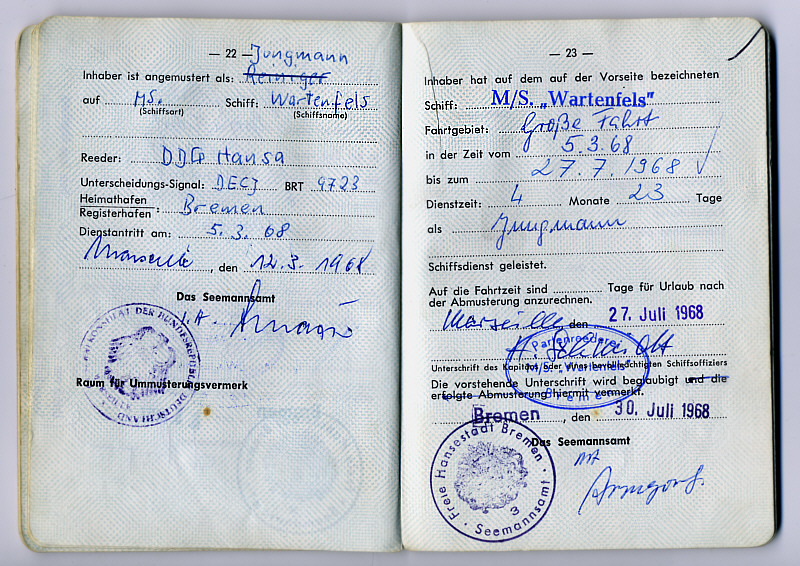 — 22 —
Jungmann
Inhaber ist angemustert als: Reiniger
auf MS. Schiff: Wartenfels
(Schiffsart) (Schiffsname)
Reeder: DDG Hansa
Unterscheidungs-Signal: DECJ BRT 9723
Heimathafen
Registerhafen : Bremen
Dienstantritt am: 5. 3. 68
Marseille, den 12. 3. 1968
Das Seemannsamt
I.A.
KONSULAT DER BUNDESREPUBLIK DEUTSCHLAND
Raum für Ummusterungsvermerk
— 23 —
Inhaber hat auf dem auf der Vorseite bezeichneten
Schiff: M/S. „Wartenfels"
Fahrtgebiet: Große Fahrt
in der Zeit vom 5. 3. 68
bis zum 27. 7. 1968
Dienstzeit: 4 Monate 23 Tage
als Jungmann
Schiffsdienst geleistet.
Auf die Fahrtzeit sind Tage für Urlaub nach
der Abmusterung anzurechnen.
Marseille, den 27. Juli 1968
Partenreederei
M/S. „Wartenfels"
Bremen
Unterschrift des Kapitäns oder eines bevollmächtigten Schiffsoffiziers
Die vorstehende Unterschrift wird beglaubigt und die
erfolgte Abmusterung hiermit vermerkt.
Bremen, den 30. Juli 1968
Das Seemannsamt
Freie Hansestadt Bremen
3
Seemannsamt